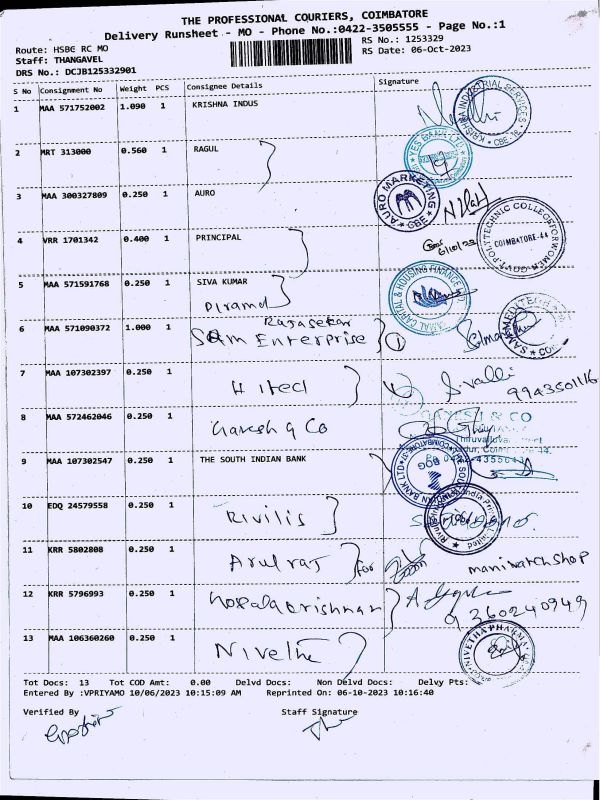 THE PROFESSIONAL COURIERS, COIMBATORE
Delivery Runsheet - MO - Phone No.:0422-3505555 - Page No.:1
Route: HSBC RC MO
RS No.: 1253329
Staff: THANGAVEL
RS Date: 06-Oct-2023
DRS No.: DCJB125332901
S No Consignment No Weight PCS Consignee Details Signature
1 MAA 571752002 1.090 1 KRISHNA INDUS
2 MRT 313000 0.560 1 RAGUL
YES BANK LTD
3 MAA 300327809 0.250 1 AURO
AURO MARKETING CBE
4 VRR 1701342 0.400 1 PRINCIPAL
6/10/23
COIMBATORE-44
5 MAA 571591768 0.250 1 SIVA KUMAR
Piramal
CAPITAL & HOUSING FINANCE
6 MAA 571090372 1.000 1 Rajasekar
Sam Enterprise
7 MAA 107302397 0.250 1 Hitech
9943501116
8 MAA 572462046 0.250 1 Ganesh & Co
GANESH & CO
9 MAA 107302547 0.250 1 THE SOUTH INDIAN BANK
10 EDQ 24579558 0.250 1 Rivilis
11 KRR 5802808 0.250 1 Arulraj for mani watch shop
12 KRR 5796993 0.250 1 Gopalakrishnan
9360240949
13 MAA 106360260 0.250 1 Nivetha
NIVETHA PHARMA
Tot Docs: 13 Tot COD Amt: 0.00 Delvd Docs: Non Delvd Docs: Delvy Pts:
Entered By :VPRIYAMO 10/06/2023 10:15:09 AM Reprinted On: 06-10-2023 10:16:40
Verified By Staff Signature